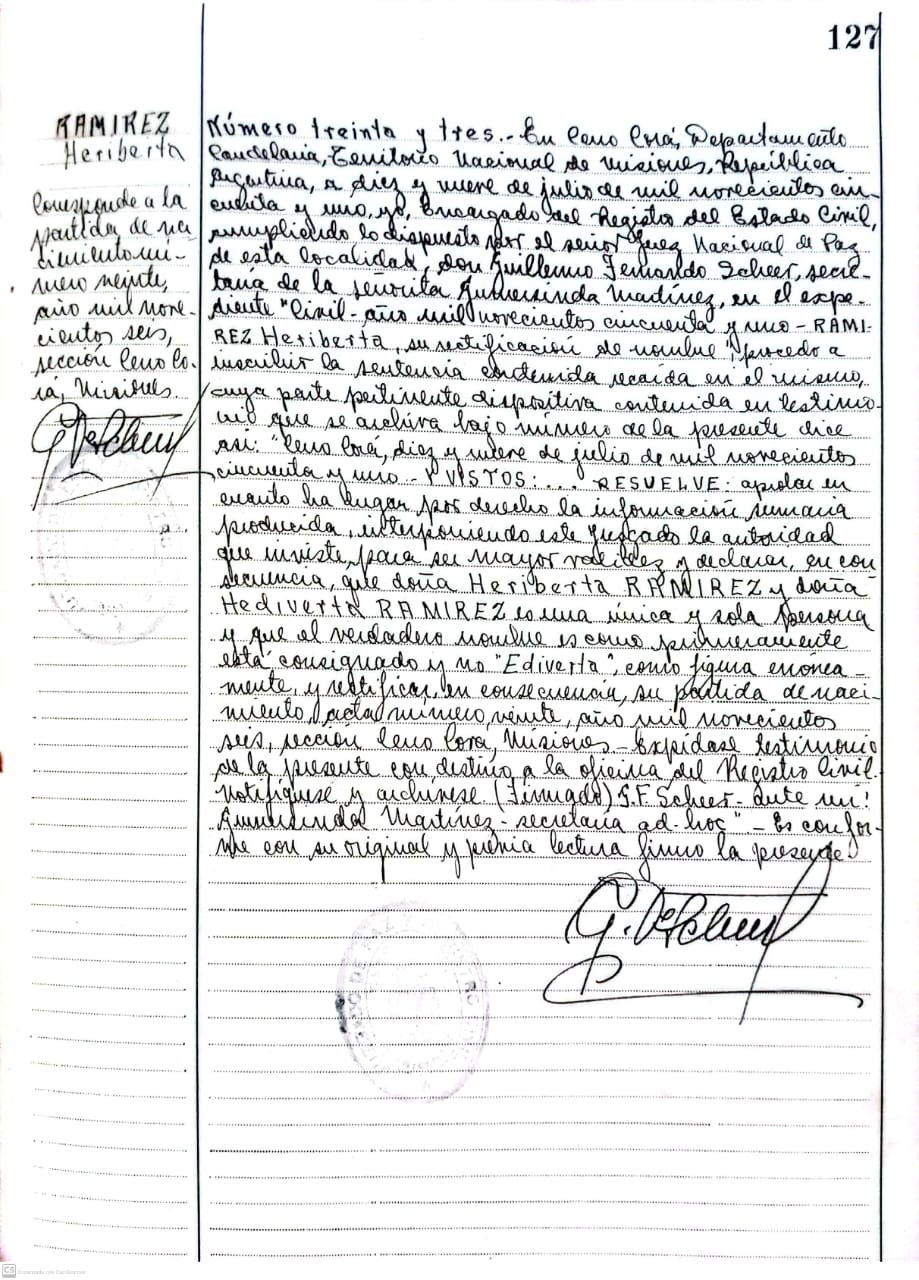 127
RAMIREZ
Heriberta
Corresponde a la
partida de na-
cimiento nú-
mero veinte,
año mil nove-
cientos seis,
sección Cerro Co-
rá, Misiones.
Número treinta y tres.- En Cerro Corá, Departamento
Candelaria, Territorio Nacional de Misiones, República
Argentina, a diez y nueve de julio de mil novecientos cin-
cuenta y uno, yo, Encargado del Registro del Estado Civil,
cumpliendo lo dispuesto por el señor Juez Nacional de Paz
de esta localidad, don Guillermo Fernando Scheer, secre-
taría de la señorita Gumersinda Martínez, en el expe-
diente "Civil-año mil novecientos cincuenta y uno - RAMI-
REZ Heriberta, su rectificación de nombre", procedo a
inscribir la sentencia contenida recaída en el mismo,
cuya parte pertinente dispositiva contenida en testimo-
nio que se archiva bajo número de la presente dice
así: "Cerro Corá, diez y nueve de julio de mil novecientos
cincuenta y uno.- Y VISTOS: .... RESUELVE: aprobar en
cuanto ha lugar por derecho la información sumaria
producida, interponiendo este juzgado la autoridad
que inviste, para su mayor validez y declarar, en con
secuencia, que doña Heriberta RAMIREZ y doña
Hediverta RAMIREZ es una única y sola persona
y que el verdadero nombre es como primeramente
está consignado y no "Ediverta", como figura errónea-
mente, y rectificar, en consecuencia, su partida de naci-
miento, acta número veinte, año mil novecientos
seis, sección Cerro Corá, Misiones.- Expídase testimonio
de la presente con destino a la oficina del Registro Civil.
Notifíquese y archívese (Firmado) G.F. Scheer- ante mí:
Gumersinda Martínez- secretaria ad-hoc" - Es confor-
me con su original y previa lectura firmo la presente.
JUZGADO DE PAZ
CS Escaneado con CamScanner